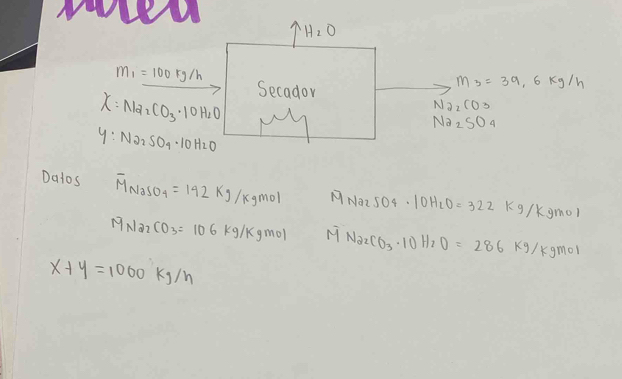 ↑H2O
m1 = 100 kg/h
Secador
m3 = 39,6 kg/h
X: Na2CO3·10H2O
Na2CO3
Na2SO4
Y: Na2SO4·10H2O
Datos
M̄NaSO4 = 142 kg/kgmol
M̄Na2SO4·10H2O = 322 kg/kgmol
M̄Na2CO3 = 106 kg/kgmol
M̄Na2CO3·10H2O = 286 kg/kgmol
X+Y = 1000 kg/h